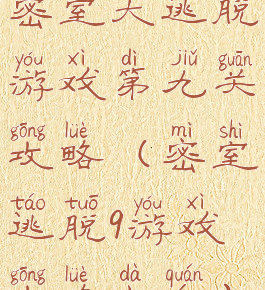 密室大逃脱
yóu xì dì jiǔ guān
游戏第九关
gōng lüè mì shì
攻略（密室
táo tuō yóu xì
逃脱9游戏
gōng lüè dà quán